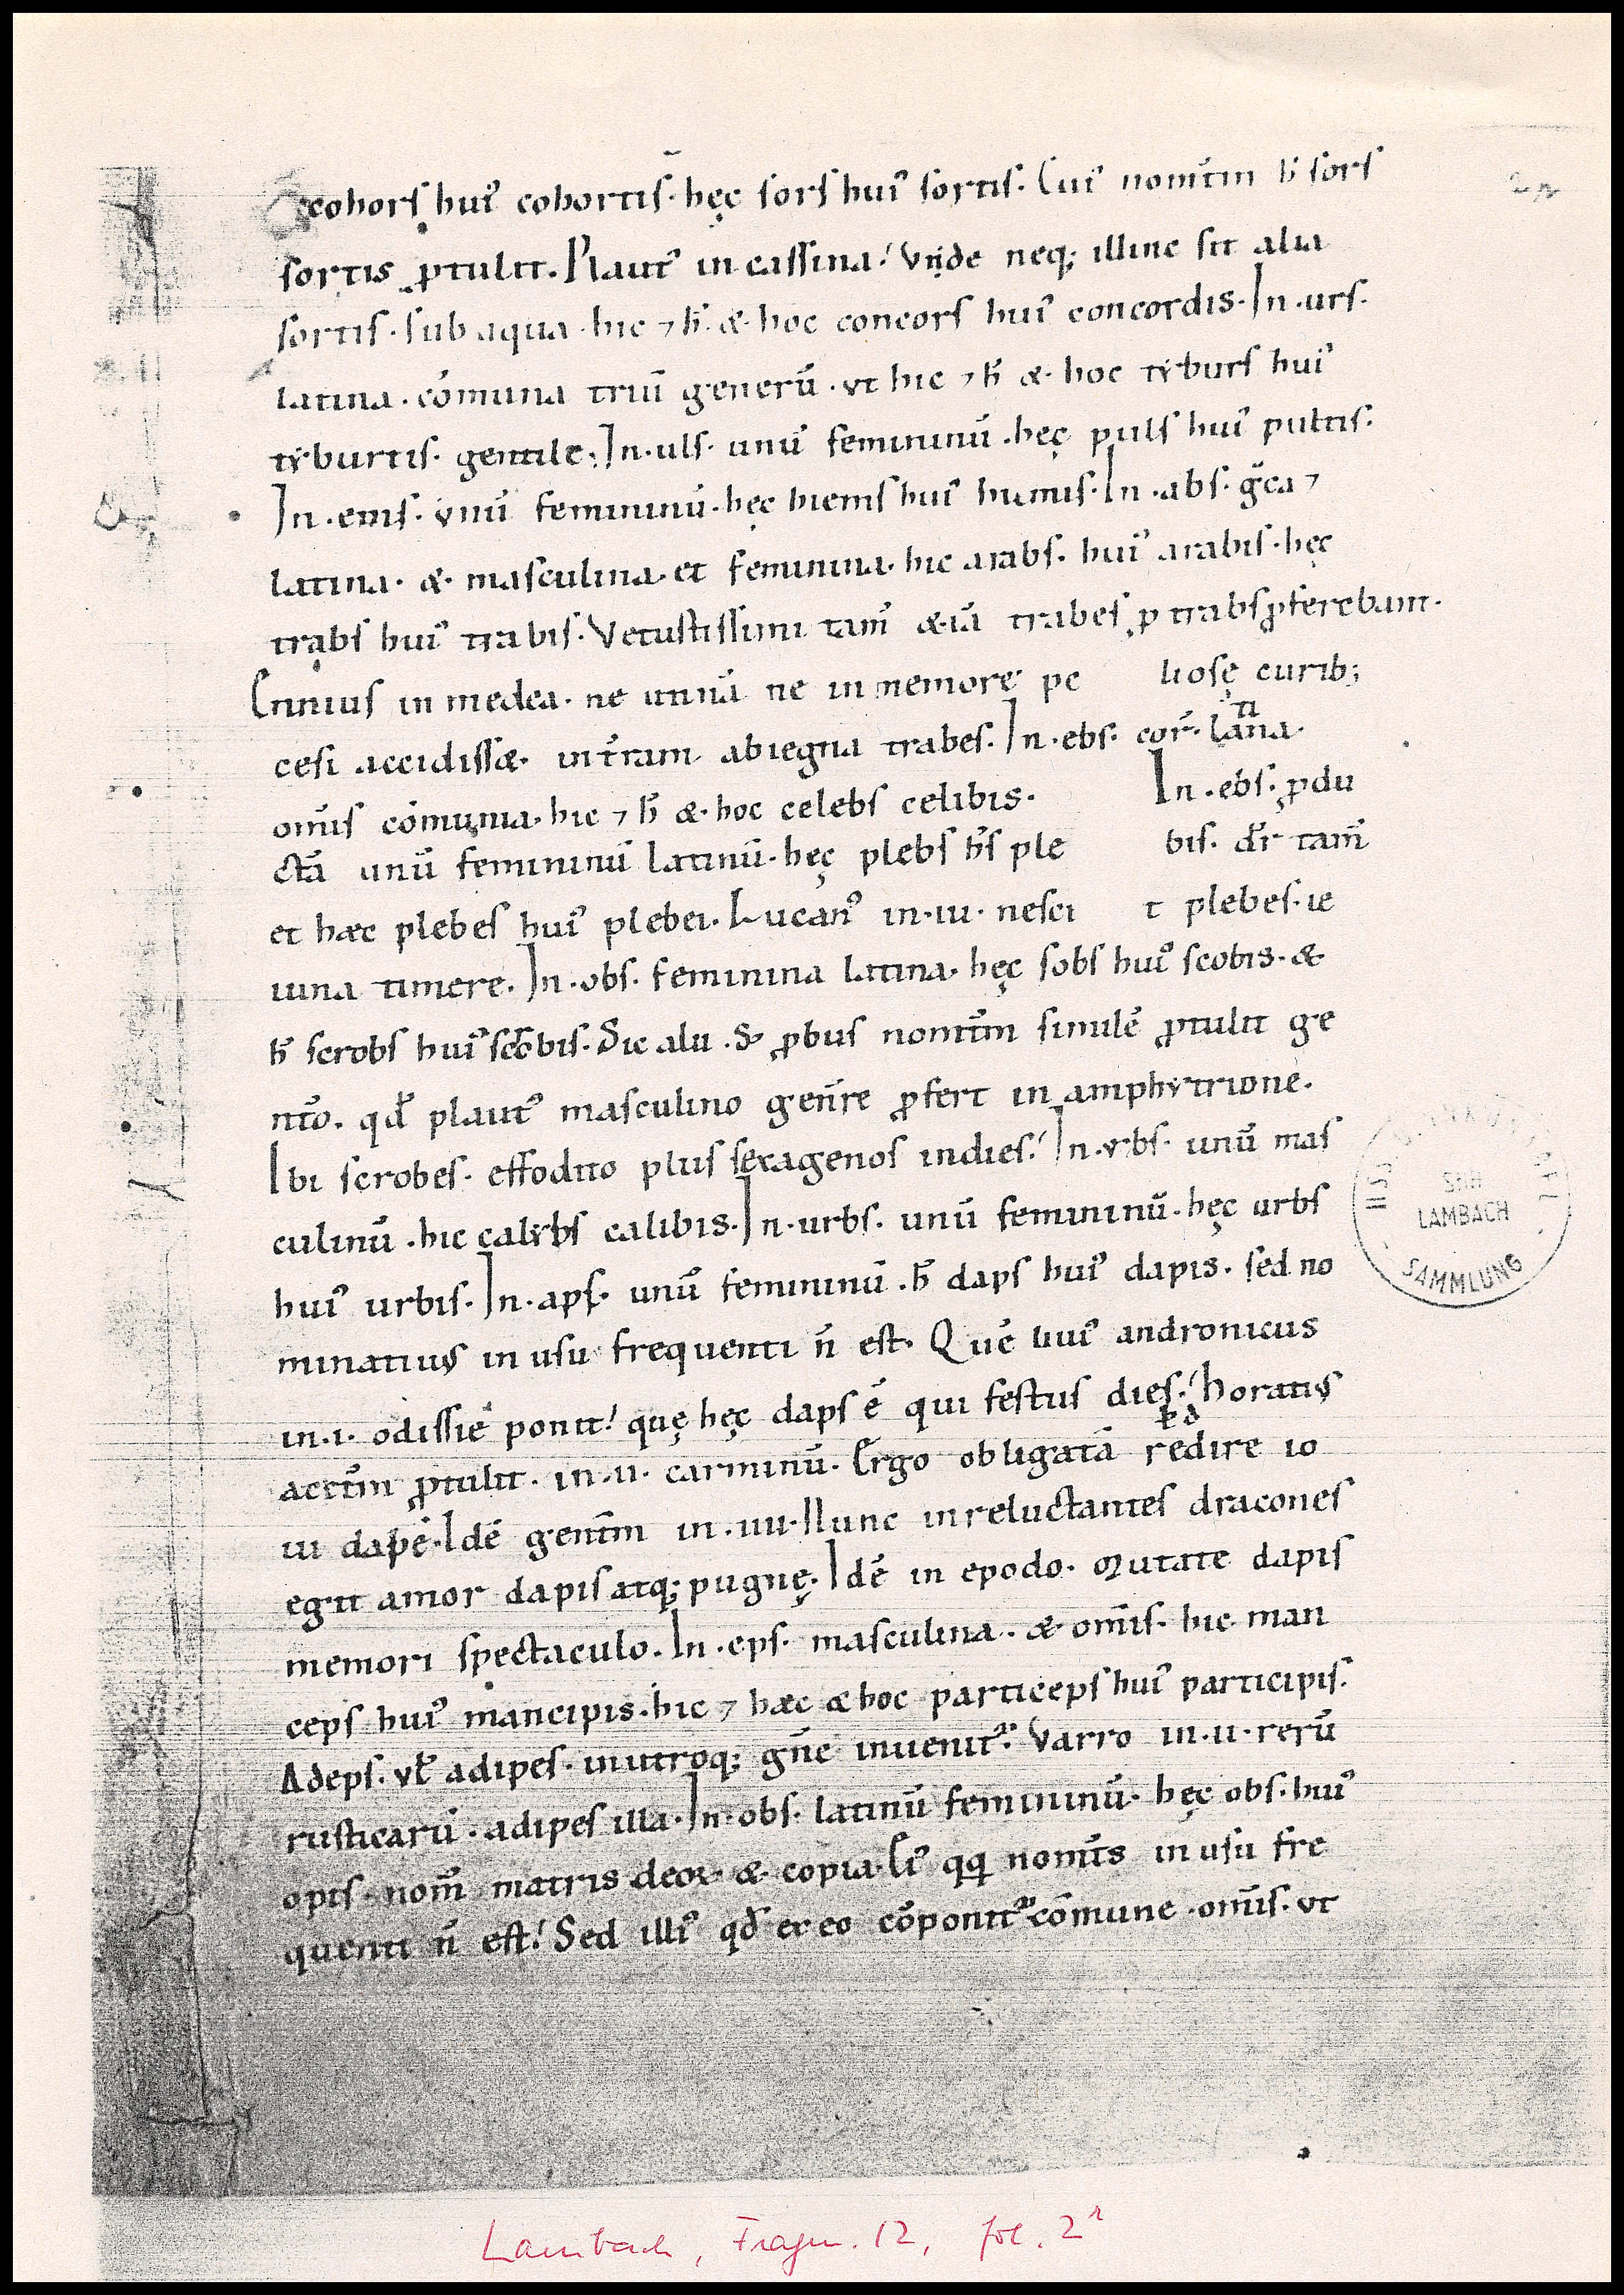 2r
cohors hui᷒ cohortis· hęc sors hui᷒ sortis. Cui᷒ nomītm h̄ sors
sortis ꝓtulit. Plaut᷒ in cassina! Vnde neq; illinc sit alia
sortis· sub aqua· hic ⁊ h̄· & hoc concors hui᷒ concordis· In ·urs·
latina· cōmuna triū generū· vt hic ⁊ h̄ & hoc tẏburs hui᷒
tẏburtis· gentile; In·uls· unū femininū ·hęc puls hui᷒ pultis·
In·ems· vnū femininū·hęc hiems hui᷒ hiemis· In·abs· g̅ca ⁊
latina· & masculina et feminina· hic arabs· hui᷒ arabis· hęc
trabs hui᷒ trabis· Vetustissimi tam̄ &iā trabes ꝓ trabs ꝓferebant·
Ennius in medea· ne utinā ne in nemore pe liosę curib;
cesi accidiss&· in t̄ram abiegna trabes· In·ebs· cor̄· latina·
om̄is cōmunia· hic ⁊ h̄ & hoc celebs celibis· In·ebs· ꝓdu
ctā unū femininū latinū· hęc plebs h̄s ple bis· dr̄ tam̄
et hæc plebes hui᷒ plebei· Lucan᷒ in·iii· nesci t plebes·ie
iuna timere· In·obs· feminina latina· hęc sobs hui᷒ scobis· &
h̄ scrobs hui᷒ scrobis· Sic alii ·S& ꝓbus nomītm similē ꝓtulit ge
nīto· qd̄ plaut᷒ masculino gen̄re ꝓfert in amphẏtrione·
Ibi scrobes· effodito plus sexagenos indies! In·ẏbs· unū mas
culinū ·hic calẏbs calibis· In·urbs· unū femininū· hęc urbs
hui᷒ urbis· In·aps· unū femininū ·h̄ daps hui᷒ dapis· sed no
minatius in usu frequenti n̄ est· Quē liui᷒ andronicus
in·i· odissiē ponit! quę hęc daps ē qui festus dies! horatis
acctm̄ ꝓtulit· in·ii· carminū· Ergo obligatā redire io
ui dapē· Idē genītm in·iiii· Nunc in reluctantes dracones
egit amor dapis atq; pugnę· Idē in epodo· Mutate dapis
memori spectaculo· In·eps· masculina· & om̄is· hic man
ceps hui᷒ mancipis· hic ⁊ hæc & hoc particeps hui᷒ participis·
Adeps· vł adipes· in utroq; gn̄e inuenit᷑· Varro in·ii· rerū
rusticarū· adipes illa· In·obs· latinū femininū· hęc obs· hui᷒
opis· nom̄ matris deoꝝ & copia· Cui᷒ qq nom̄s in usu fre
quenti n̄ est! Sed illi᷒ qd̄ ex eo cōponit᷑ cōmune ·om̄is· vt
SAMMLUNG
Stift
LAMBACH
Lambach, Fragm. 12, fol. 2r